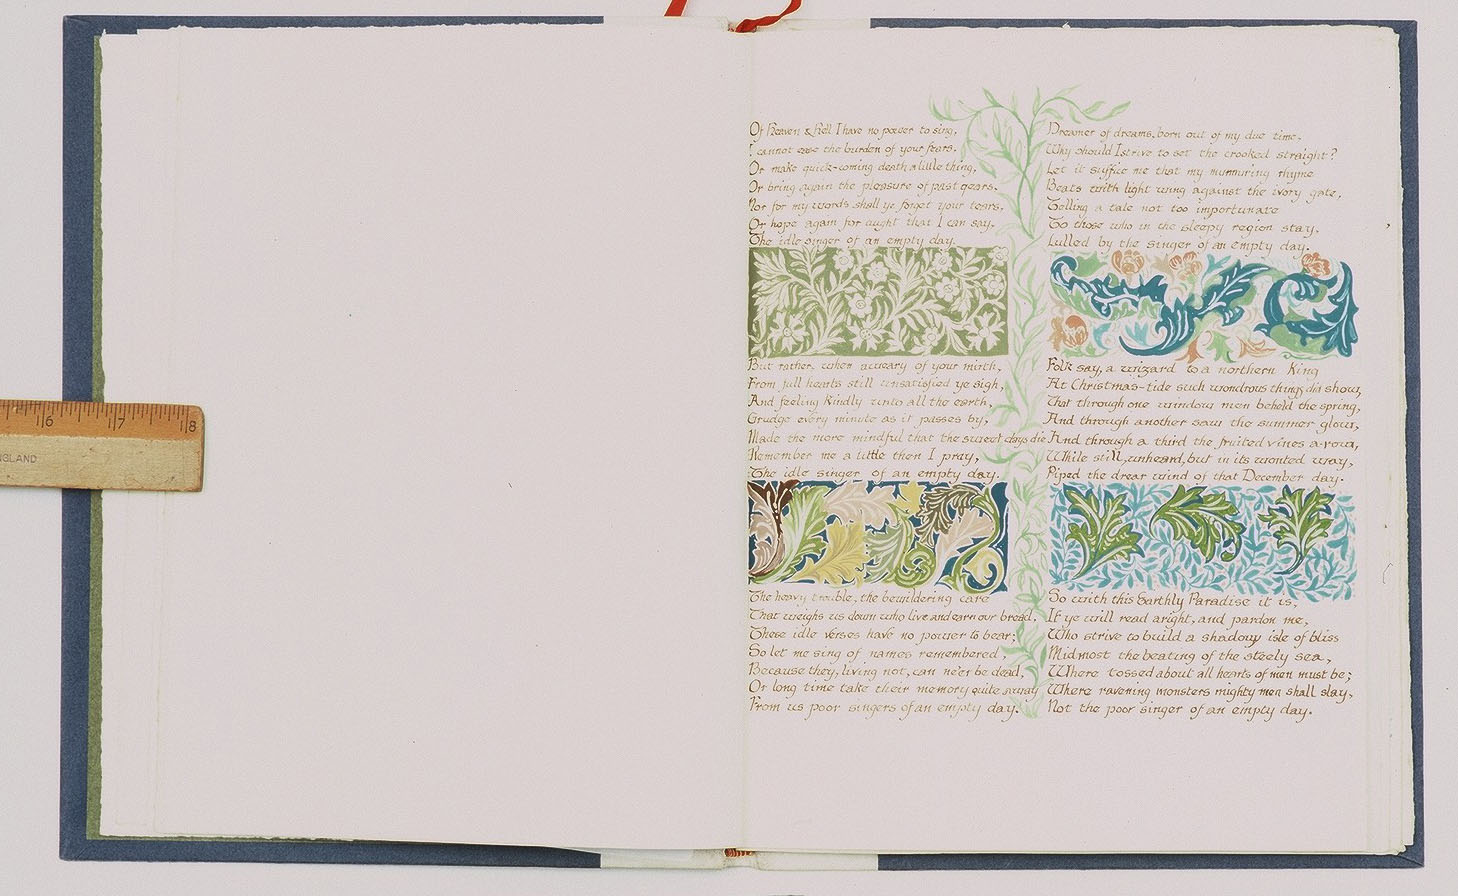 Of Heaven & Hell I have no power to sing,
I cannot ease the burden of your fears,
Or make quick-coming death a little thing,
Or bring again the pleasure of past years,
Nor for my words shall ye forget your tears,
Or hope again for aught that I can say,
The idle singer of an empty day.
But rather, when aweary of your mirth,
From full hearts still unsatisfied ye sigh,
And feeling kindly unto all the earth,
Grudge every minute as it passes by,
Made the more mindful that the sweet days die
Remember me a little then I pray,
The idle singer of an empty day.
The heavy trouble, the bewildering care
That weighs us down who live and earn our bread,
These idle verses have no power to bear;
So let me sing of names remembered,
Because they, living not, can ne'er be dead,
Or long time take their memory quite away
From us poor singers of an empty day.
Dreamer of dreams, born out of my due time,
Why should I strive to set the crooked straight?
Let it suffice me that my murmuring rhyme
Beats with light wing against the ivory gate,
Telling a tale not too importunate
To those who in the sleepy region stay,
Lulled by the singer of an empty day.
Folk say, a wizard to a northern King
At Christmas-tide such wondrous things did show,
That through one window men beheld the spring,
And through another saw the summer glow,
And through a third the fruited vines a-row,
While still, unheard, but in its wonted way,
Piped the drear wind of that December day.
So with this Earthly Paradise it is,
If ye will read aright, and pardon me,
Who strive to build a shadowy isle of bliss
Midmost the beating of the steely sea,
Where tossed about all hearts of men must be;
Where ravening monsters mighty men shall slay,
Not the poor singer of an empty day.
16 17 18
NGLAND